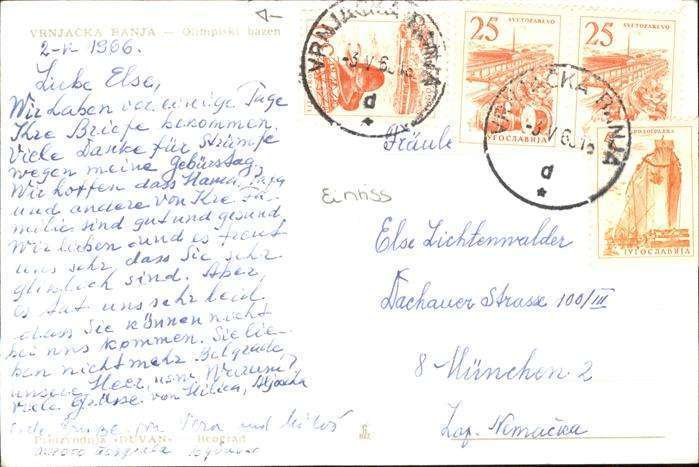 VRNJAČKA BANJA — Olimpiski bazen
2-V-1966.
Liebe Else,
Wir haben vor einige Tage
Ihre Briefe bekommen.
Viele Danke für Strümpfe
wegen meine Gebürstag.
Wir hoffen dass Mama, Papa
und andere von Ihre Fa-
milie sind gut und gesund.
Wir lieben und es freut
uns sehr, dass Sie sehr
glücklich sind. Aber,
es tut uns sehr leid
dass Sie können nicht
bei uns kommen. Sie lie-
ben nicht mehr Belgrade,
unsere Meer, usw. Warum?
Viele Grüsse von Milica,
Grüße von Vera und Miloš
"DUVAN" Beograd
VRNJAČKA BANJA
-3.V.66.18
d
25
SVETOZAREVO
25
SVETOZAREVO
JUGOSLAVIJA
VRNJAČKA BANJA
-3.V.66.18
d
ЈУГОСЛАВИЈА
Fräule
Einriss
Else Lichtenwalder
Dachauer Strasse 100/III
8 München 2
Zap. Nemačka